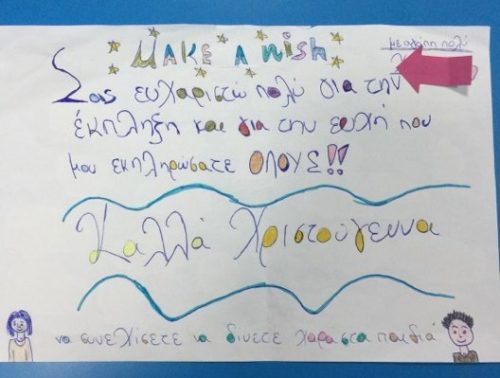 MAKE A WISH
με αγάπη πολύ
Σας ευχαριστώ πολύ για την
έκπληξη και για την ευχή που
μου εκπληρώσατε ΟΛΟΥΣ!!
Καλλά Χριστούγεννα
να συνεχίσετε να δίνετε χαρά στα παιδιά